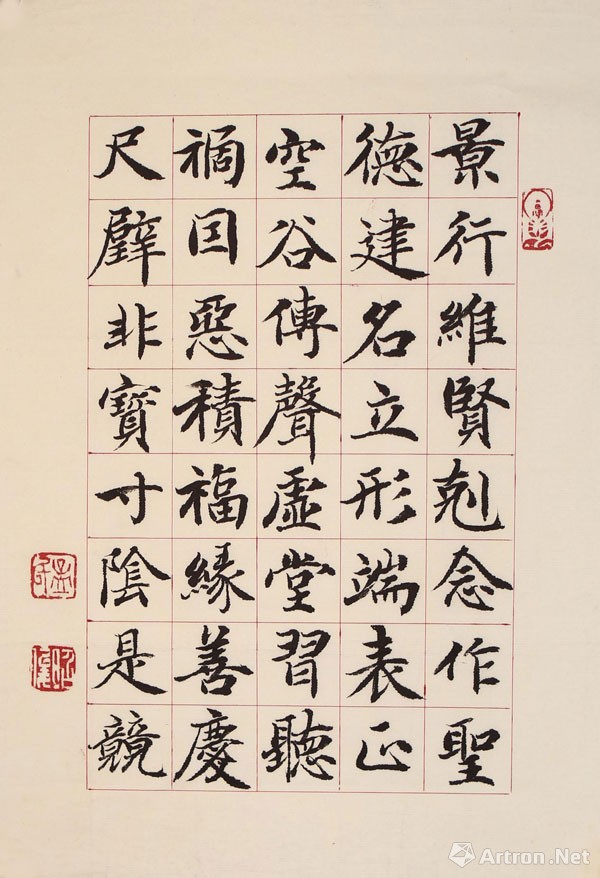 景行維賢剋念作聖
德建名立形端表正
空谷傳聲虛堂習聽
禍因惡積福緣善慶
尺璧非寶寸陰是競
Artron.Net